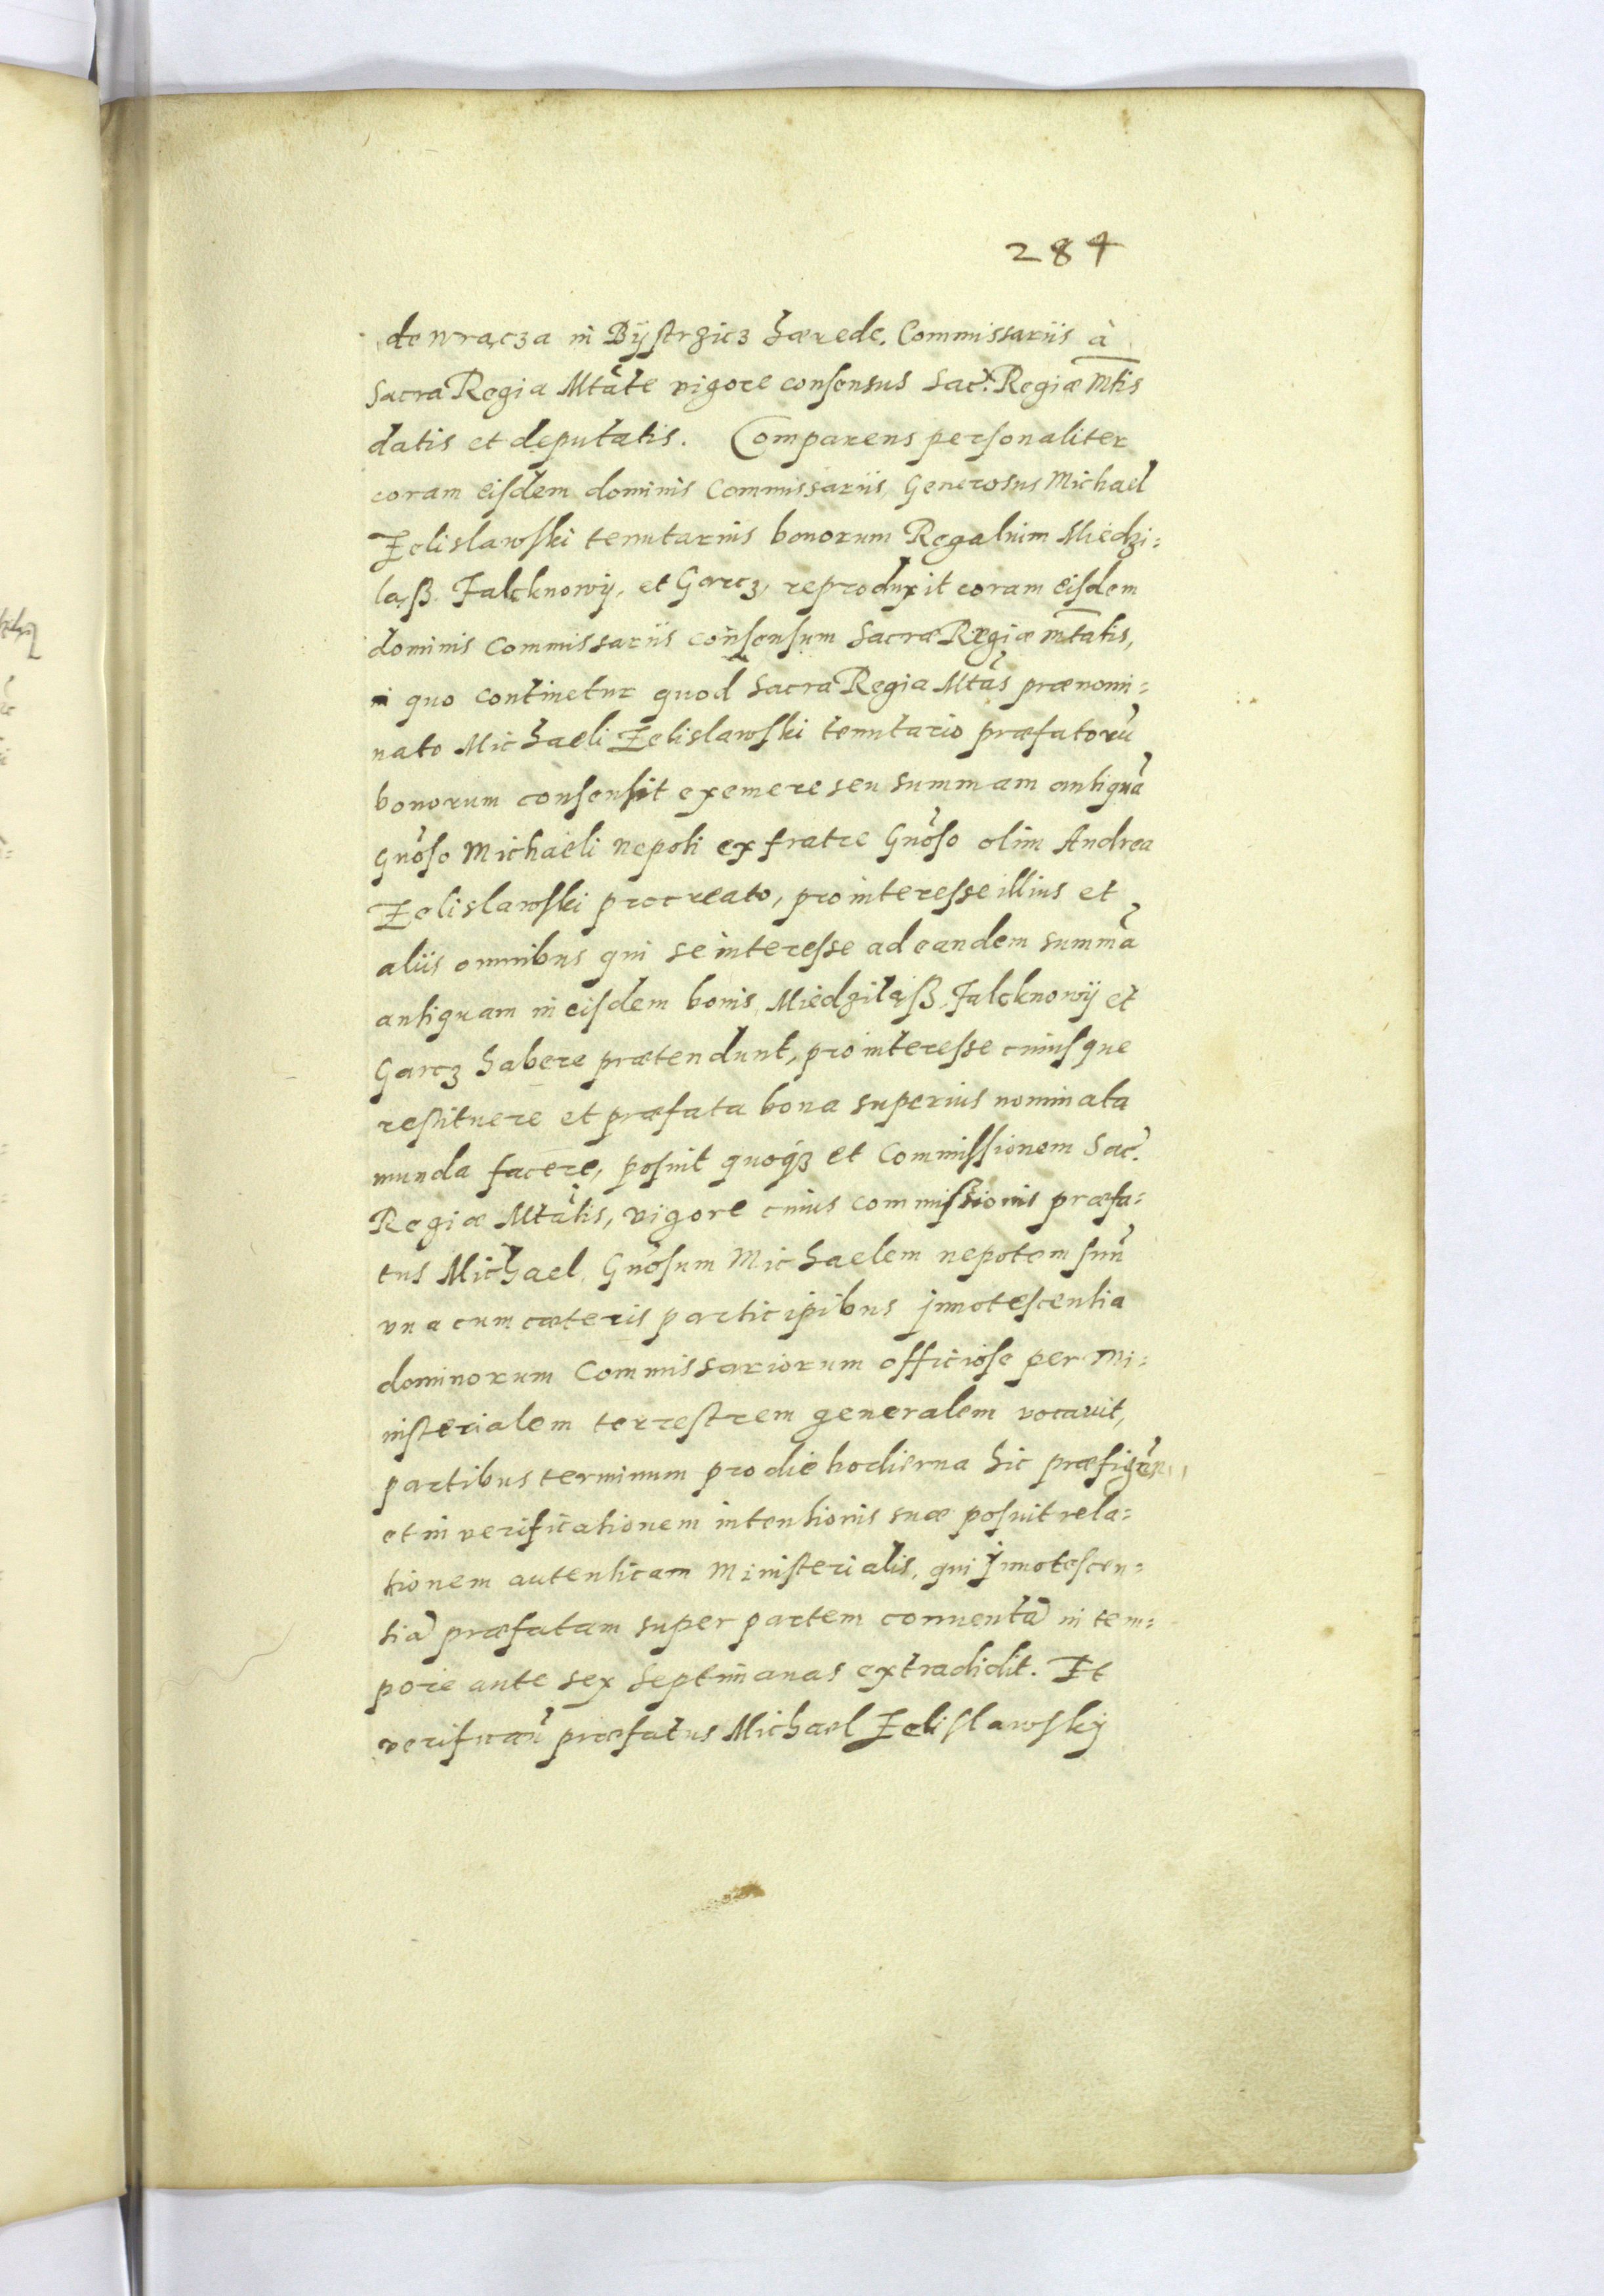 284
de Wrącza in Bÿstrzicz hærede. Commissariis à
Sacra Regia Mtate vigore consensus Sac: Regiæ Mtis
datis et deputatis. Comparens personaliter
coram eisdem dominis Commissariis Generosus Michael
Zelislawski tenutarius bonorum Regalium Miedzi=
ląß Falcknowÿ, et Garcz, reproduxit coram eisdem
dominis Commissariis consensum Sacræ Regiæ mtatis,
in quo continetur quod Sacra Regia Mtas prænomi=
nato Michaeli Zelislawski tenutario præfatorũ
bonorum consensit exemere seu summam antiquã
Gnoso Michaeli nepoti ex fratre Gnoso olim Andrea
Zelislawski procreato, pro interesse illius et
aliis omnibus qui se interesse ad eandem summã
antiquam in eisdem bonis Miedziląß, Falcknowÿ et
Garcz habere prætendunt, pro interesse cuiusque
restituere et præfata bona superius nominata
munda facere, posuit quoqȝ et Commissionem Sac:
Regiæ Mtatis, vigore cuius commissionis præfa=
tus Michael, Gnosum Michaelem nepotem suũ
vna cum cæteris participibus jnnotescentia
dominorum Commissariorum officiose per Mi=
nisterialem terrestrem generalem vocavit,
partibus terminum pro die hodierna hic præfigeñ
et in verificationem intentionis suæ posuit rela=
tionem autenticam Ministerialis, qui jnnotescen=
tiã præfatam super partem conuentã in tem=
pore ante sex septimanas extradidit. Et
verificañ præfatus Michael Zelislawskÿ